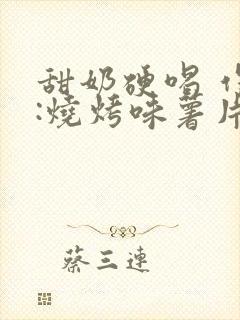 甜奶硬唱
:燒烤味薯片
蔡三連